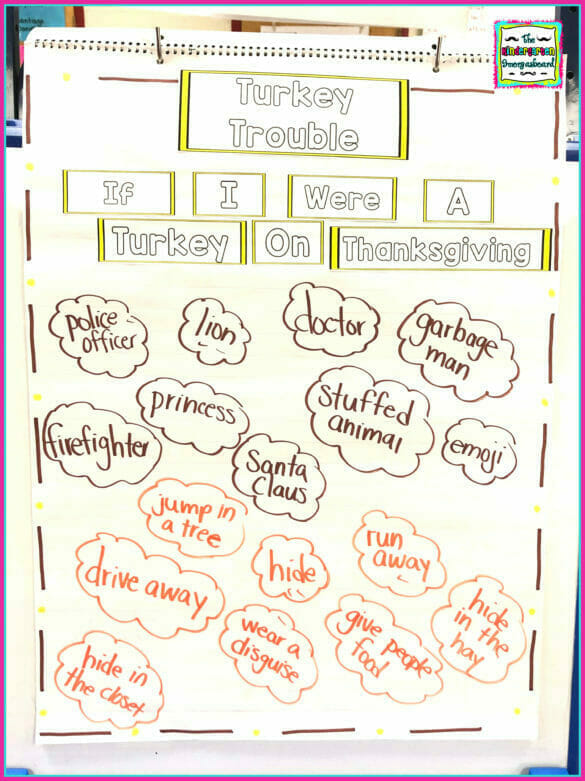 the
Kindergarten
Smorgasboard
Turkey
Trouble
If I Were A
Turkey On Thanksgiving
police
officer
lion
doctor
garbage
man
princess
stuffed
animal
firefighter
emoji
Santa
Claus
jump in
a tree
run
away
hide
drive away
hide
in the
hay
wear a
disguise
give people
food
hide in
the closet